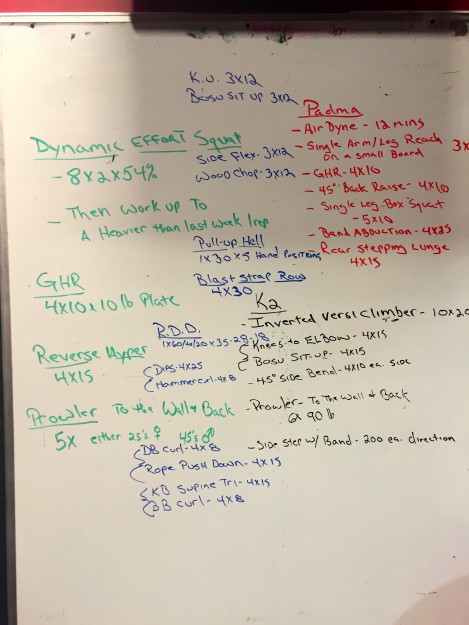 K.U. 3x12
Bosu Sit up 3x12
Dynamic Effort Squat
- 8x2x54%
- Then work up To
A Heavier than last week 1rep
Side Flex - 3x12
Wood Chop - 3x12
Pull-up Hell
1x30x5 Hand Positions
Blast Strap Row
4x30
Padma
- Air Dyne - 12 mins
- Single Arm/Leg Reach
on a small Board 3x
- GHR - 4x10
- 45° Back Raise - 4x10
- Single Leg Box Squat
- 5x10
- Band Abduction - 4x25
- Rear Stepping Lunge
4x15
GHR
4x10x10 lb Plate
Reverse Hyper
4x15
Prowler To the Wall & Back
5x either 25's ♀ 45's ♂
R.D.D.
Dips - 4x25
Hammercurl - 4x8
DB Curl - 4x8
Rope Push Down - 4x15
KB Supine Tri - 4x15
BB Curl - 4x8
K2
- Inverted Versiclimber - 10x20
Knees to Elbow - 4x15
Bosu Sit-up - 4x15
- 45° Side Bend - 4x10 ea. side
- Prowler - To the Wall & Back
6x 90 lb
- Side Step w/ Band - 200 ea. direction